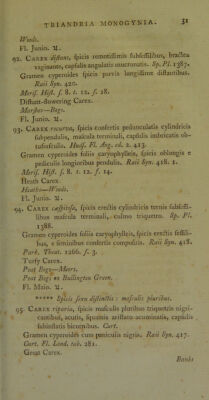 TRIANDRIA MONOGYNIA. 31
Woods.
Fl. Junio. ♃.
92. Carex distans, spicis remotissimis subsessilibus, bractea
vaginante, capsulis angulatis mucronatis. Sp. Pl. 1387.
Gramen cyperoides spicis parvis longissime distantibus.
Raii Syn. 420.
Moris. Hist. s. 8. t. 12. f. 18.
Distant-flowering Carex.
Marshes—Bogs.
Fl. Junio. ♃.
93. Carex recurva, spicis confertis pedunculatis cylindricis
subpendulis, mascula terminali, capsulis imbricatis ob-
tusiusculis. Huds. Fl. Ang. ed. 2. 413.
Gramen cyperoides foliis caryophylleis, spicis oblongis e
pediculis longioribus pendulis. Raii Syn. 418. 2.
Moris. Hist. s. 8. t. 12. f. 14.
Heath Carex.
Heaths—Woods.
Fl. Junio. ♃.
94. Carex cæspitosa, spicis erectis cylindricis ternis subsessi-
libus mascula terminali, culmo triquetro. Sp. Pl.
1388.
Gramen cyperoides foliis caryophylleis, spicis erectis sessili-
bus, e seminibus confertis compositis. Raii Syn. 418.
Park. Theat. 1266. f. 3.
Turfy Carex.
Peat Bogs—Moors.
Peat Bogs on Bullington Green.
Fl. Maio. ♃.
***** Spicis sexu distinctis: masculis pluribus.
95. Carex riparia, spicis masculis pluribus triquetris nigri-
cantibus, acutis, squamis aristato-acuminatis, capsulis
subinflatis bicornibus. Curt.
Gramen cyperoides cum paniculis nigris. Raii Syn. 417.
Curt. Fl. Lond. tab. 281.
Great Carex.
Banks